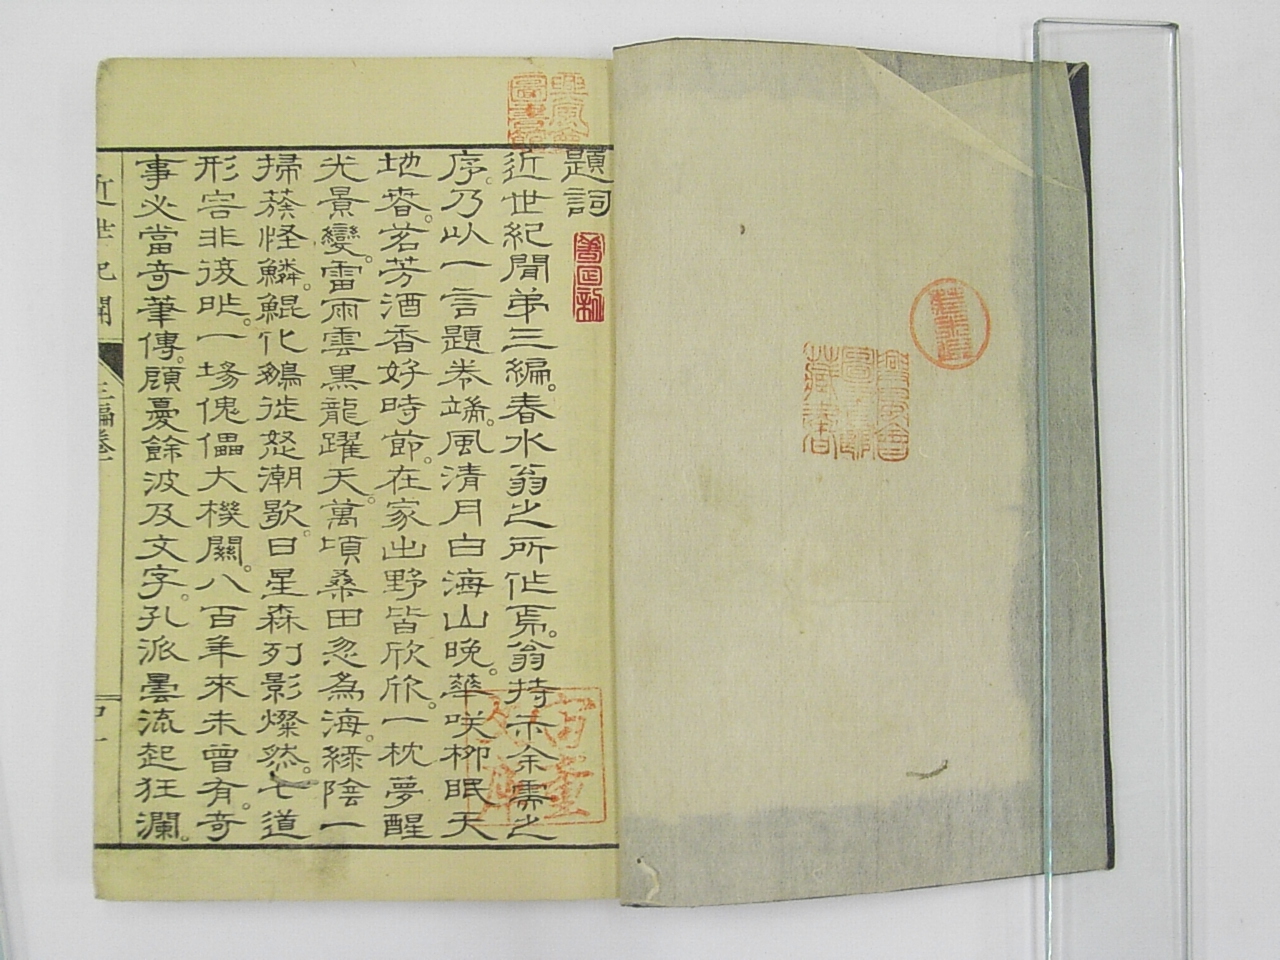 題詞
近世紀聞第三編。春水翁之所作焉。翁持示余需之
序。乃以一言題卷端。風清月白海山晚。華咲柳眠天
地春。茗芳酒香好時節。在家出野皆欣欣。一枕夢醒
光景變。雷雨雲黒龍躍天。萬頃桑田忽為海。綠陰一
掃蔟怪鱗。鯤化鵺徙怒潮歇。日星森列影燦然。七道
形容非復昨。一場傀儡大機關。八百年來未曾有。奇
事必當奇筆傳。顧憂餘波及文字。孔派曇流起狂瀾。
近世紀聞
三編卷一
圖書館